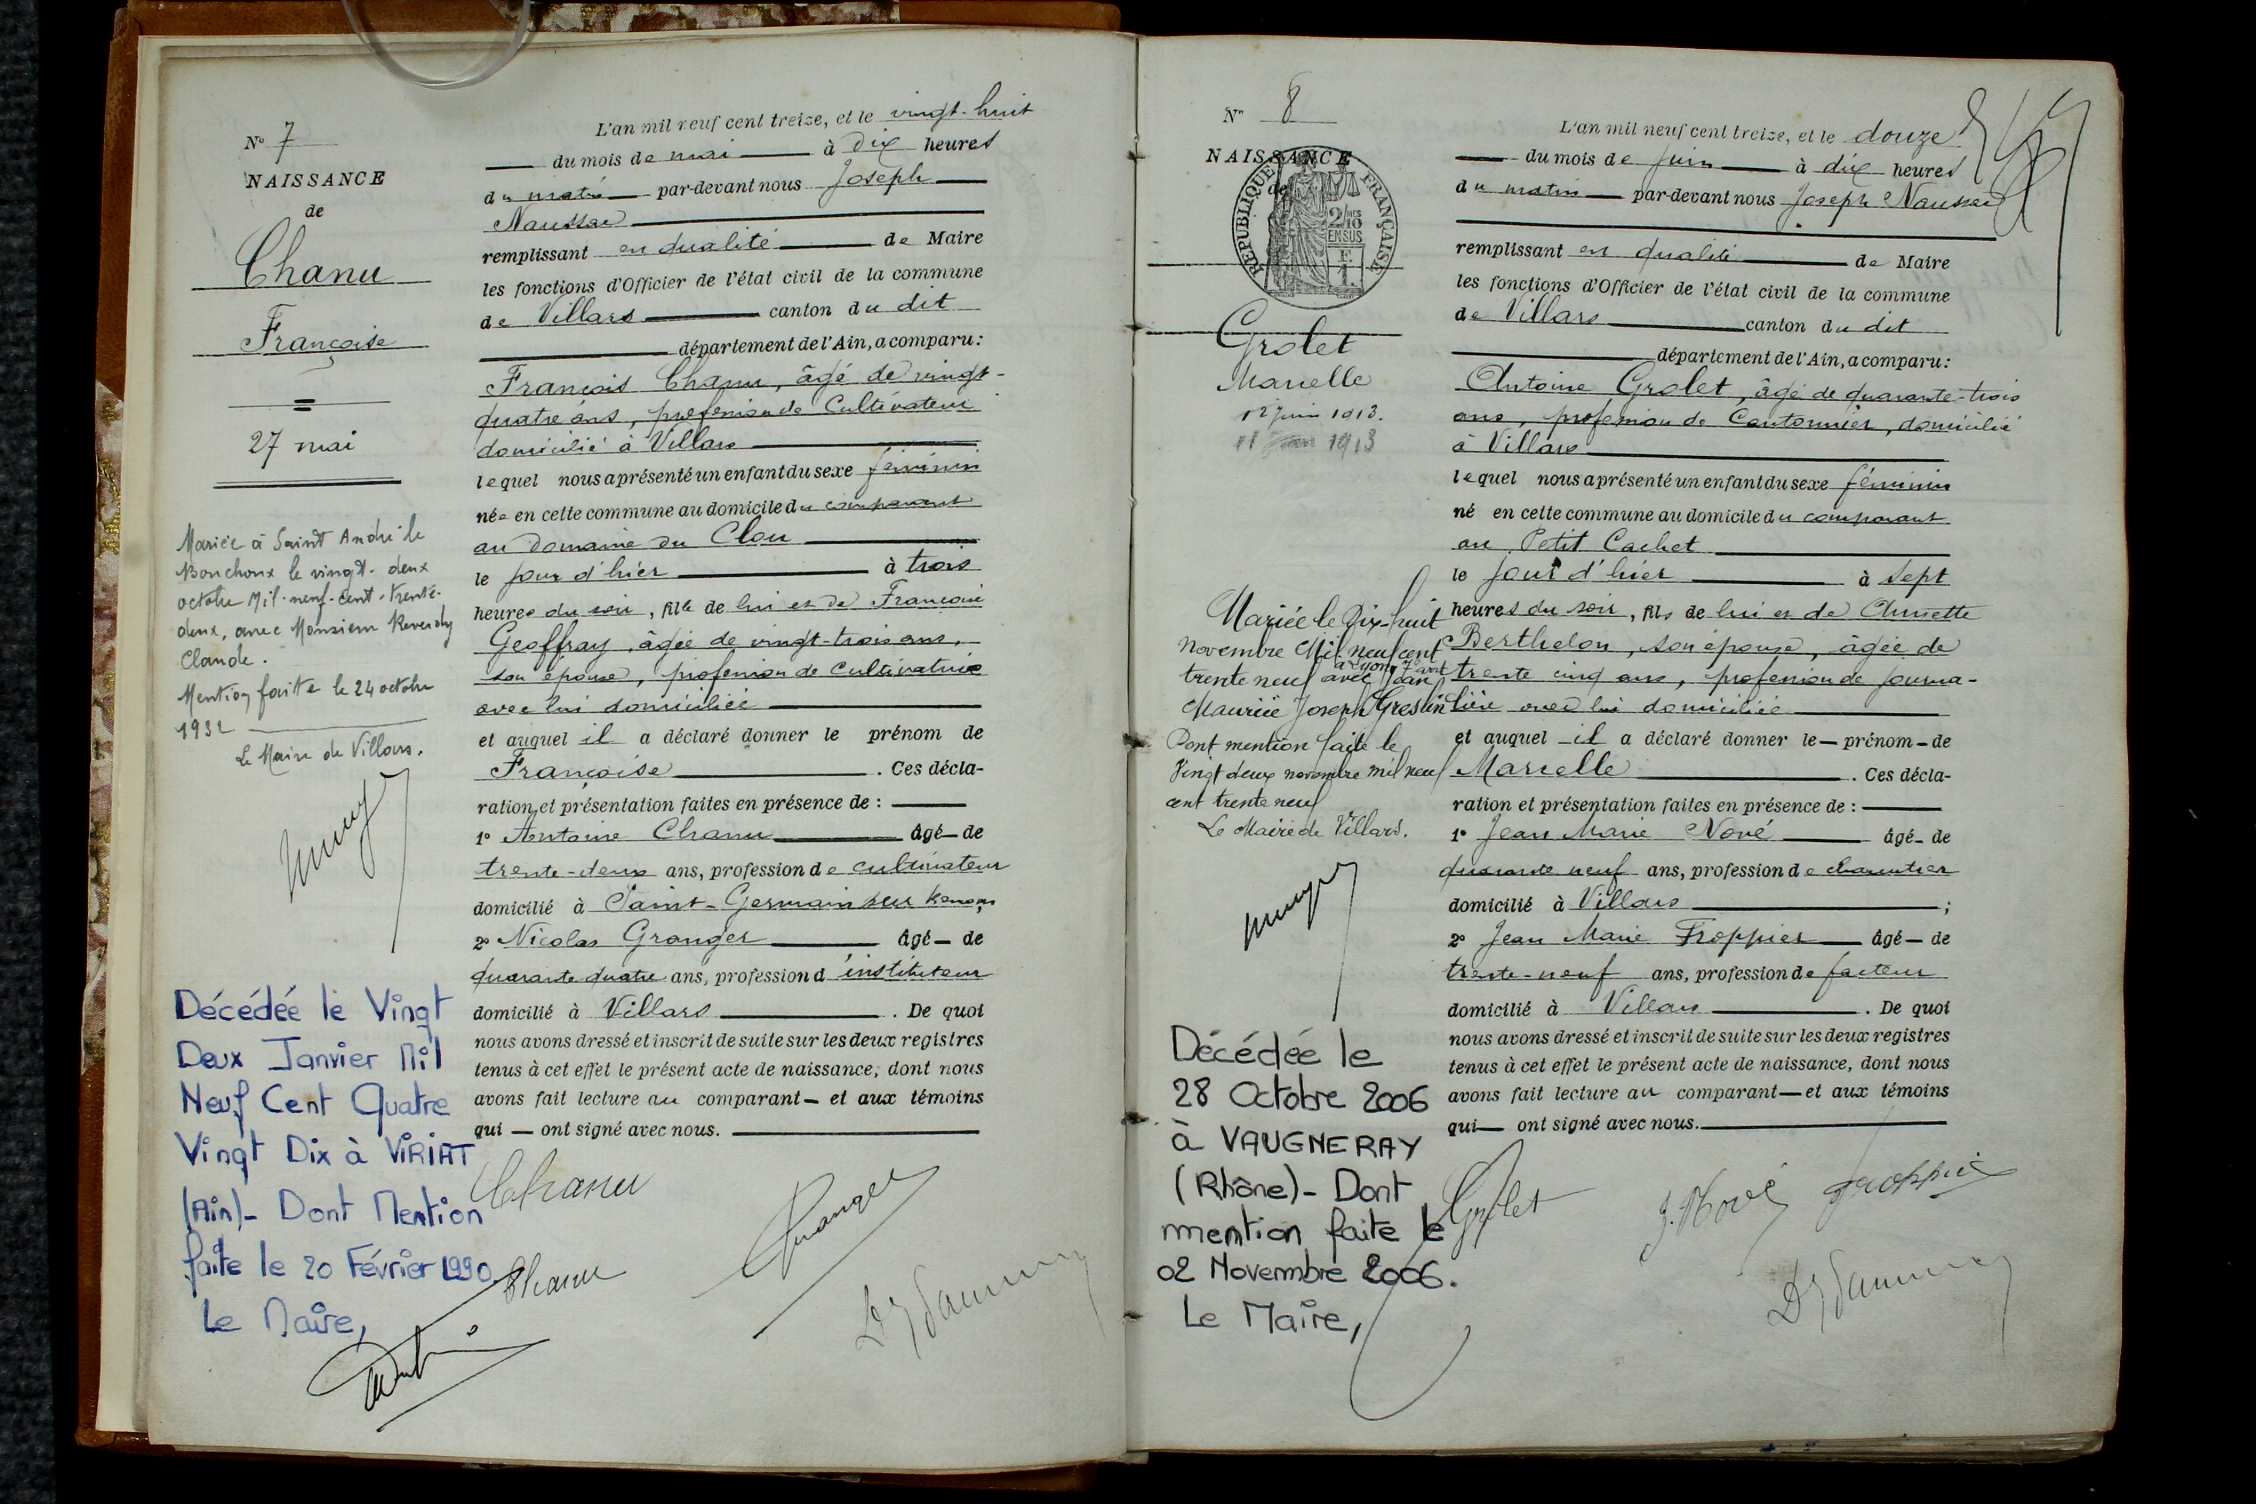 N° 7
NAISSANCE
de
Chanu
Françoise
27 mai
Mariée à Saint André le
Bouchoux le vingt-deux
octobre Mil-neuf-cent-trente-
deux, avec Monsieur Reverdy
Claude.
Mention faite le 24 octobre
1932
Le Maire de Villars.
Décédée le Vingt
Deux Janvier Mil
Neuf Cent Quatre
Vingt Dix à VIRIAT
(Ain)- Dont Mention
faite le 20 Février 1990
Le Maire,
L'an mil neuf cent treize, et le vingt-huit
du mois de mai à dix heures
du matin par-devant nous Joseph
Naussac
remplissant en qualité de Maire
les fonctions d'Officier de l'état civil de la commune
de Villars canton du dit
département de l'Ain, a comparu:
François Chanu, âgé de vingt-
quatre ans, profession de Cultivateur
domicilié à Villars
lequel nous a présenté un enfant du sexe féminin
née en cette commune au domicile du comparant
au domaine du Clou
le jour d'hier à trois
heures du soir, fille de lui et de Françoise
Geoffray, âgée de vingt-trois ans,
son épouse, profession de cultivatrice
avec lui domiciliée
et auquel il a déclaré donner le prénom de
Françoise. Ces décla-
ration et présentation faites en présence de :
1° Antoine Chanu âgé de
trente-deux ans, profession de cultivateur
domicilié à Saint-Germain sur Renon
2° Nicolas Granger âgé de
quarante quatre ans, profession d'instituteur
domicilié à Villars. De quoi
nous avons dressé et inscrit de suite sur les deux registres
tenus à cet effet le présent acte de naissance, dont nous
avons fait lecture au comparant et aux témoins
qui ont signé avec nous.
Chanu
Granger
Chanu
N° 8
NAISSANCE
de
REPUBLIQUE FRANÇAISE
2/10 EN SUS
Grolet
Marcelle
12 juin 1913.
11 Juin 1913
Mariée le Dix-huit
novembre Mil neuf cent
à Lyon 7e arrt
trente neuf avec Jean
Maurice Joseph Greslin
Dont mention faite le
Vingt deux novembre mil neuf
cent trente neuf
Le Maire de Villars.
Décédée le
28 Octobre 2006
à VAUGNERAY
(Rhône)- Dont
mention faite le
02 Novembre 2006.
Le Maire,
L'an mil neuf cent treize, et le douze
du mois de Juin à dix heures
du matin par-devant nous Joseph Naussac
remplissant en qualité de Maire
les fonctions d'Officier de l'état civil de la commune
de Villars canton du dit
département de l'Ain, a comparu:
Antoine Grolet, âgé de quarante-trois
ans, profession de Cantonnier, domicilié
à Villars
lequel nous a présenté un enfant du sexe féminin
né en cette commune au domicile du comparant
au Petit Cachet
le jour d'hier à sept
heures du soir, fils de lui et de Annette
Berthelon, son épouse, âgée de
trente cinq ans, profession de journa-
lière avec lui domiciliée
et auquel il a déclaré donner le prénom de
Marcelle. Ces décla-
ration et présentation faites en présence de :
1° Jean Marie Nové âgé de
quarante neuf ans, profession de charpentier
domicilié à Villars ;
2° Jean Marie Froppier âgé de
trente-neuf ans, profession de facteur
domicilié à Villars. De quoi
nous avons dressé et inscrit de suite sur les deux registres
tenus à cet effet le présent acte de naissance, dont nous
avons fait lecture au comparant et aux témoins
qui ont signé avec nous.
Grolet J. Nové Froppier